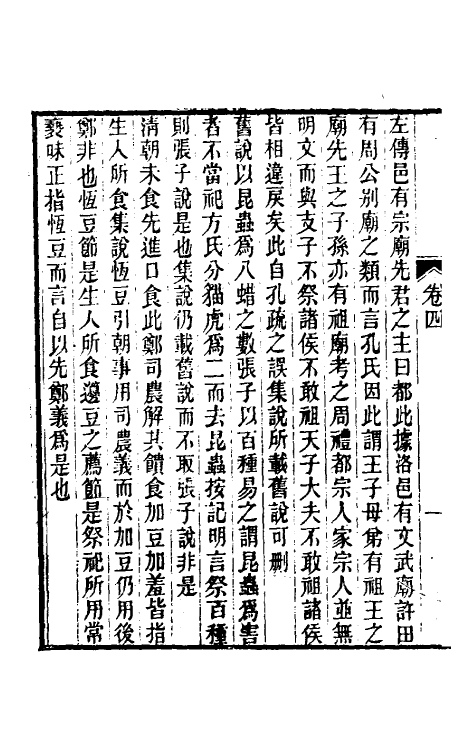 卷四
一
左傳邑有宗廟先君之主曰都此據洛邑有文武廟許田
有周公别廟之類而言孔氏因此謂王子母弟有祖王之
廟先王之子孫亦有祖廟考之周禮都宗人家宗人並無
明文而與支子不祭諸侯不敢祖天子大夫不敢祖諸侯
皆相違戾矣此自孔疏之誤集說所載舊說可刪
舊說以昆蟲爲八蜡之數張子以百種易之謂昆蟲爲害
者不當祀方氏分貓虎爲二而去昆蟲按記明言祭百種
則張子說是也集說仍載舊說而不取張子說非是
清朝未食先進口食此鄭司農解其饋食加豆加羞皆指
生人所食集說恆豆引朝事用司農義而於加豆仍用後
鄭非也恆豆節是生人所食籩豆之薦節是祭祀所用常
褻味正指恆豆而言自以先鄭義爲是也